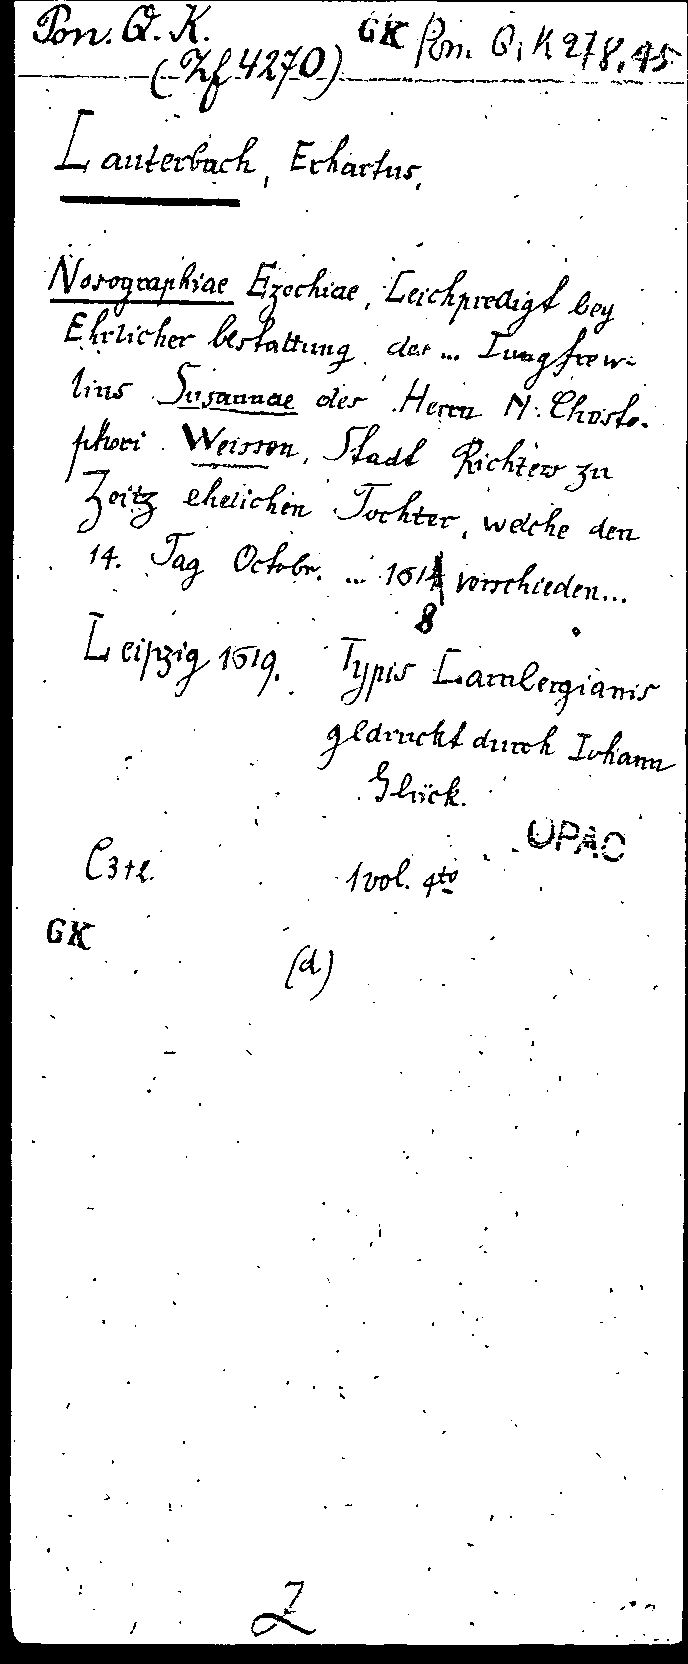 Pon. Q. K. GK Pon. Q. K 278, 45
(Zf 4270)
Lauterbach, Erhartus.
Nosographiae Ezechiae, Leichpredigt bey
Ehrlicher bestattung der ... Jungfrew-
lins Susannae des Herrn N. Christo-
phori Weissen, Stadt Richters zu
Zeitz ehelichen Tochter, welche den
14. Tag Octobr. ... 161 verschieden...
8
Leipzig 1619. Typis Lambergianis
gedruckt durch Johann
Glück.
OPAC
1 vol. 4to
GK
(d)
Z